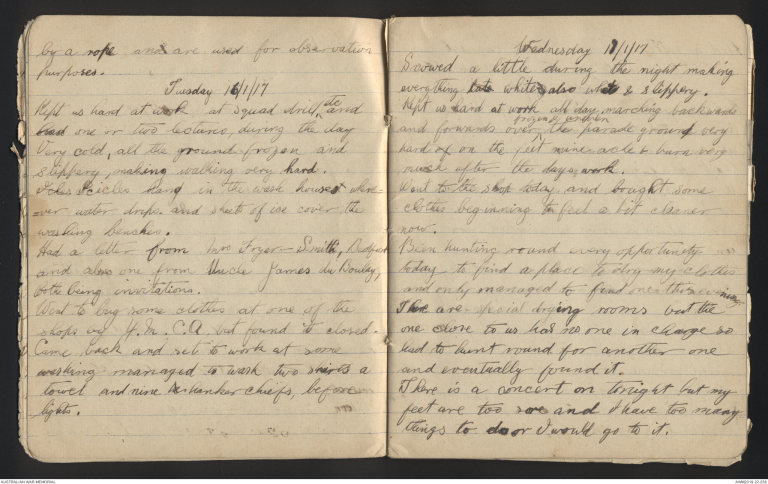 by a rope and are used for observation
purposes.
Tuesday 16/1/17
Kept us hard at work at squad drill, etc and
had one or two lectures, during the day
Very cold, all the ground frozen and
slippery, making walking very hard.
Icicles hang in the wash houses where-
=ver water drips. and sheets of ice cover the
washing benches.
Had a letter from Mrs Fryer-Smith, Bedford
and also one from Uncle James du Boulay,
both being invitations.
Went to buy some clothes at one of the
shops or Y.M.C.A. but found it closed.
Came back and set to work at some
washing managed to wash two shirts a
towel and nine hankerchiefs, before
lights.
Wednesday 17/1/17
Snowed a little during the night making
everything white, also wet & slippery.
Kept us hard at work all day, marching backwards
frozen & uneven
and forwards over, the parade ground very
hard on the feet mine ache & burn very
much after the days work.
Went to the shop today, and bought some
clothes beginning to feel a bit cleaner
now.
Been hunting round every opportunity
today, to find a place to dry my clothes
and only managed to find one this evening
There are special drying rooms but the
one close to us has no one in charge so
had to hunt round for another one
and eventually found it.
There is a concert on tonight but my
feet are too sore and I have too many
things to do or I would go to it.
AUSTRALIAN WAR MEMORIAL